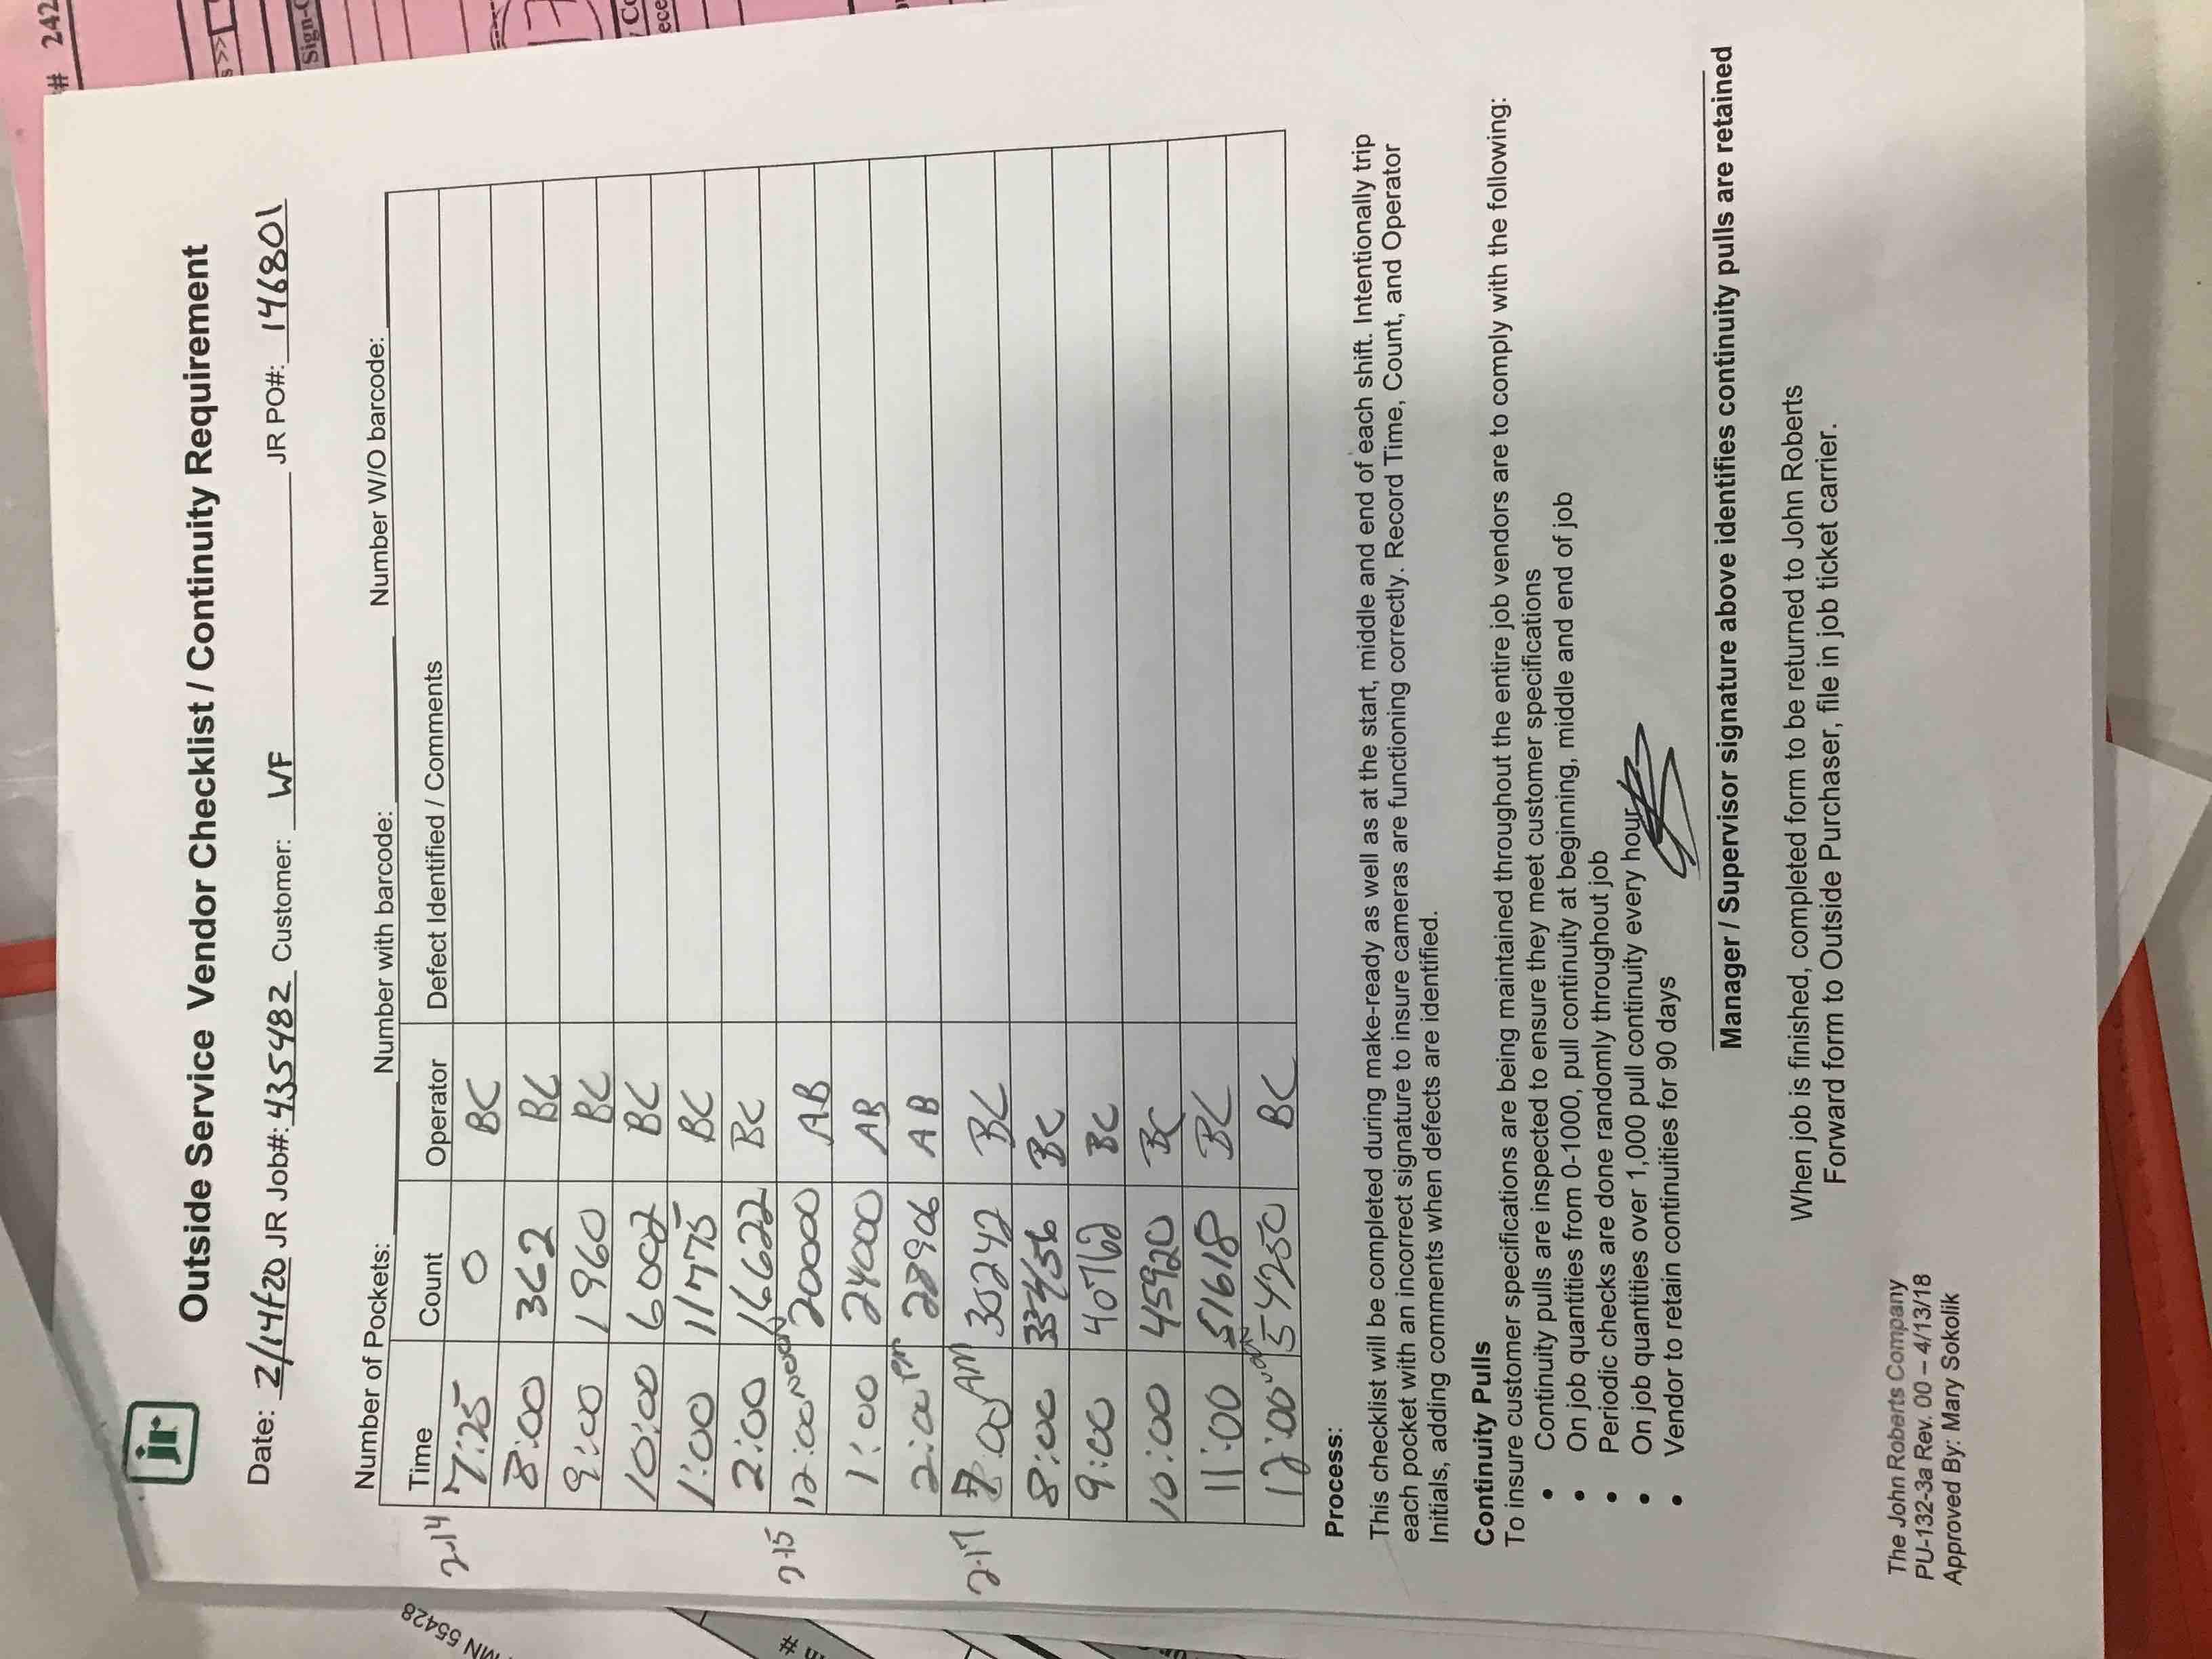 jr
Outside Service Vendor Checklist / Continuity Requirement
Date: 2/14/20 JR Job#: 435482 Customer: WF JR PO#: 146801
Number of Pockets: Number with barcode: Number W/O barcode:
Time Count Operator Defect Identified / Comments
2-14 7:25 0 BC
8:00 362 BC
9:00 1960 BC
10:00 6002 BC
1:00 11775 BC
2:00 16622 BC
2-15 12:00 noon 20000 AB
1:00 24000 AB
2:00 PM 28906 AB
2-17 7:00 AM 30242 BC
8:00 BC
9:00 40762 BC
10:00 45920 BC
11:00 51618 BC
12:00 54250 BC
Process:
This checklist will be completed during make-ready as well as at the start, middle and end of each shift. Intentionally trip
each pocket with an incorrect signature to insure cameras are functioning correctly. Record Time, Count, and Operator
Initials, adding comments when defects are identified.
Continuity Pulls
To insure customer specifications are being maintained throughout the entire job vendors are to comply with the following:
• Continuity pulls are inspected to ensure they meet customer specifications
• On job quantities from 0-1000, pull continuity at beginning, middle and end of job
• Periodic checks are done randomly throughout job
• On job quantities over 1,000 pull continuity every hour
• Vendor to retain continuities for 90 days
Manager / Supervisor signature above identifies continuity pulls are retained
When job is finished, completed form to be returned to John Roberts
Forward form to Outside Purchaser, file in job ticket carrier.
The John Roberts Company
PU-132-3a Rev. 00 – 4/13/18
Approved By: Mary Sokolik
MN 55428
# 242